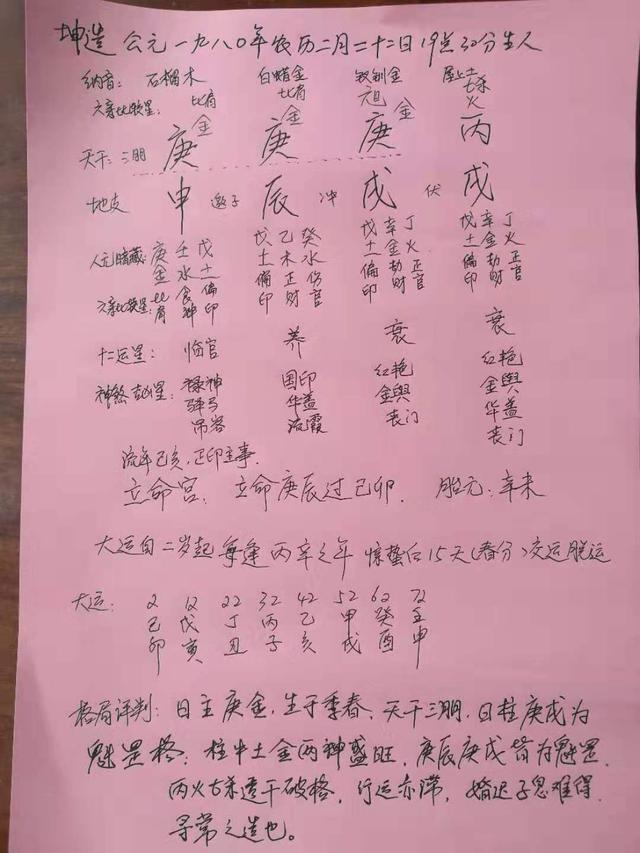 坤造 公元一九八〇年农历二月二十二日19点30分生人
纳音: 石榴木 白蜡金 钗钏金 屋上土
六亲比联星: 比肩 比肩 元祖 七杀
金 金 金 火
天干:三朋 庚 庚 庚 丙
地支 申 邀子 辰 冲 戌 伏 戌
人元暗藏: 庚壬戊 戊乙癸 戊辛丁 戊辛丁
金水土 土木水 土金火 土金火
六亲比联星: 比食偏 偏正伤 偏劫正 偏劫正
肩神印 印财官 印财官 印财官
十二运星: 临官 养 衰 衰
神煞吉凶星: 禄神 国印 红艳 红艳
驿马 华盖 金舆 金舆
吊客 流霞 丧门 华盖
丧门
流年己亥,正印主事.
立命宫: 立命庚辰过己卯. 胎元:辛未
大运自二岁起每逢丙辛之年 惊蛰后15天(春分)交运脱运
大运: 2 12 22 32 42 52 62 72
己 戊 丁 丙 乙 甲 癸 壬
卯 寅 丑 子 亥 戌 酉 申
格局评判: 日主庚金,生于季春,天干三朋,日柱庚戌为
魁罡格,柱中土金两神盛旺,庚辰庚戌皆为魁罡
丙火七杀透干破格,行运亦滞,婚迟子息难得.
寻常之造也。